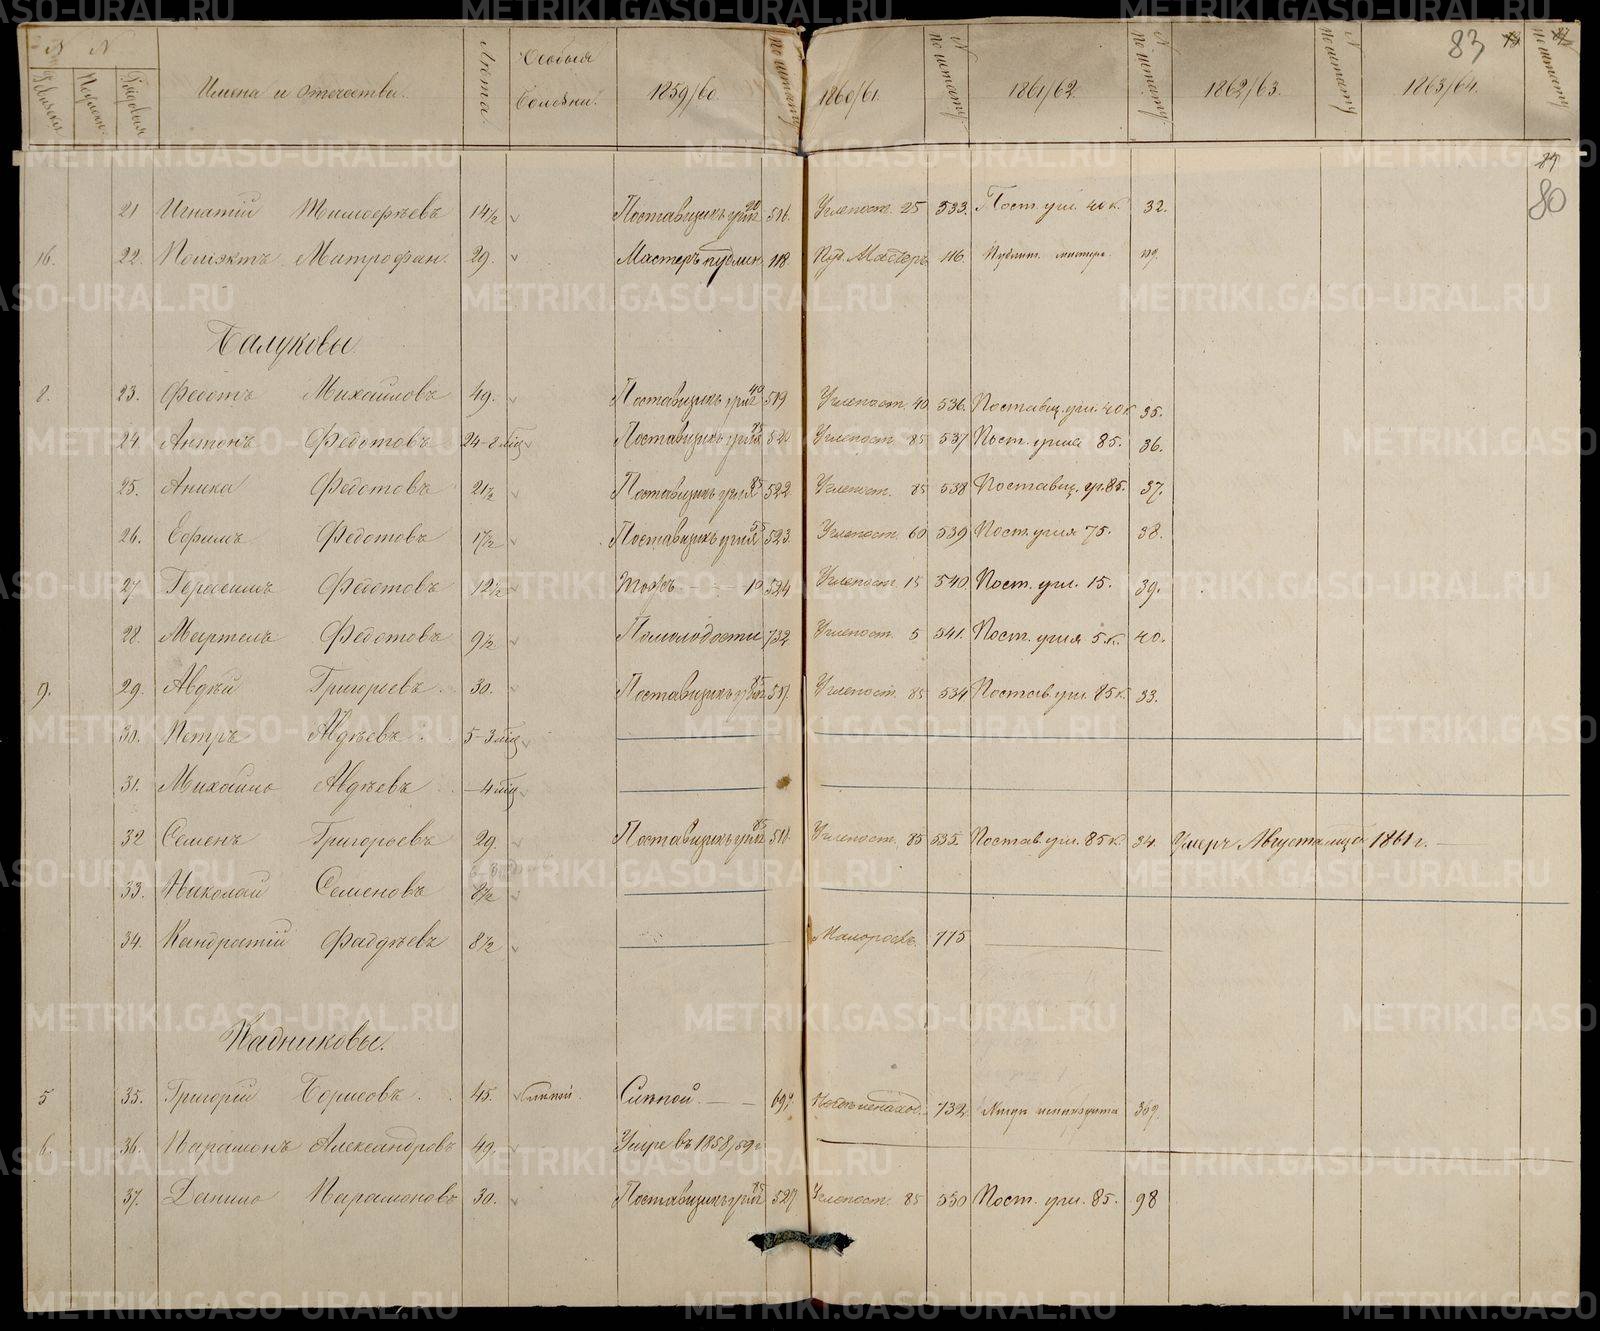 № №
Имена и отечества.
Лета.
Особыя
болезни.
1859/60.
по штату
1860/61.
№ по штату.
1861/62.
№ по штату.
1862/63.
№ по штату
1863/64.
по штату
83
80
21 Игнатій Тимофеевъ 14½ Поставщикъ угля 20 516. Углепост. 25 533. Пост. угл. 40 к. 32.
16. 22. Поліэктъ Митрофан. 29. Мастеръ пудлин. 118 Пуд. Мастеръ 116. Пудлин. мастеръ 119.
Балуковы.
8. 23. Федотъ Михайловъ 49. Поставщикъ угля 40 519 Углепост. 40 536. Поставщ. угл. 40 к 35.
24. Антонъ Федотовъ 24-8 мѣц Поставщикъ угля 85 520 Углепост. 85 537 Пост. угля 85. 36.
25. Аника Федотовъ 21½ Поставщикъ угля 85 522 Углепост. 85 538 Поставщ. уг. 85. 37.
26. Ефимъ Федотовъ 17½ Поставщикъ угля 55 523. Углепост. 60 539 Пост. угля 75. 38.
27 Герасимъ Федотовъ 12½ Тожъ 10 524 Углепост. 15 540. Пост. угл. 15. 39.
28. Мартемъ Федотовъ 9½ По молодости 732 Углепост. 5 541. Пост. угля 5 к. 40.
9. 29. Авдѣй Григорьевъ 30. Поставщикъ угля 85 517. Углепост. 85 534 Постав. угл. 85 к. 33.
30. Петръ Авдѣевъ 5-3 мѣц
31. Михайло Авдѣевъ -4 мѣц
32 Семенъ Григорьевъ 29. Поставщикъ угля 85 518. Углепост. 85 535. Постав. угл. 85 к. 34. Умеръ Августа мца 1861 г.
33. Николай Семеновъ 8½
34. Кандратій Фадѣевъ 8½ Малоросъ. 775
Кадниковы.
5 35. Григорій Борисовъ 45. Слѣпой. Слѣпой. 697. 732 369.
6. 36. Парамонъ Александровъ 49. Умре въ 1858/59 г
37. Данило Парамоновъ 30. Поставщикъ угля 85 527 Углепост. 85 550 Пост. угл. 85. 98
METRIKI.GASO-URAL.RU